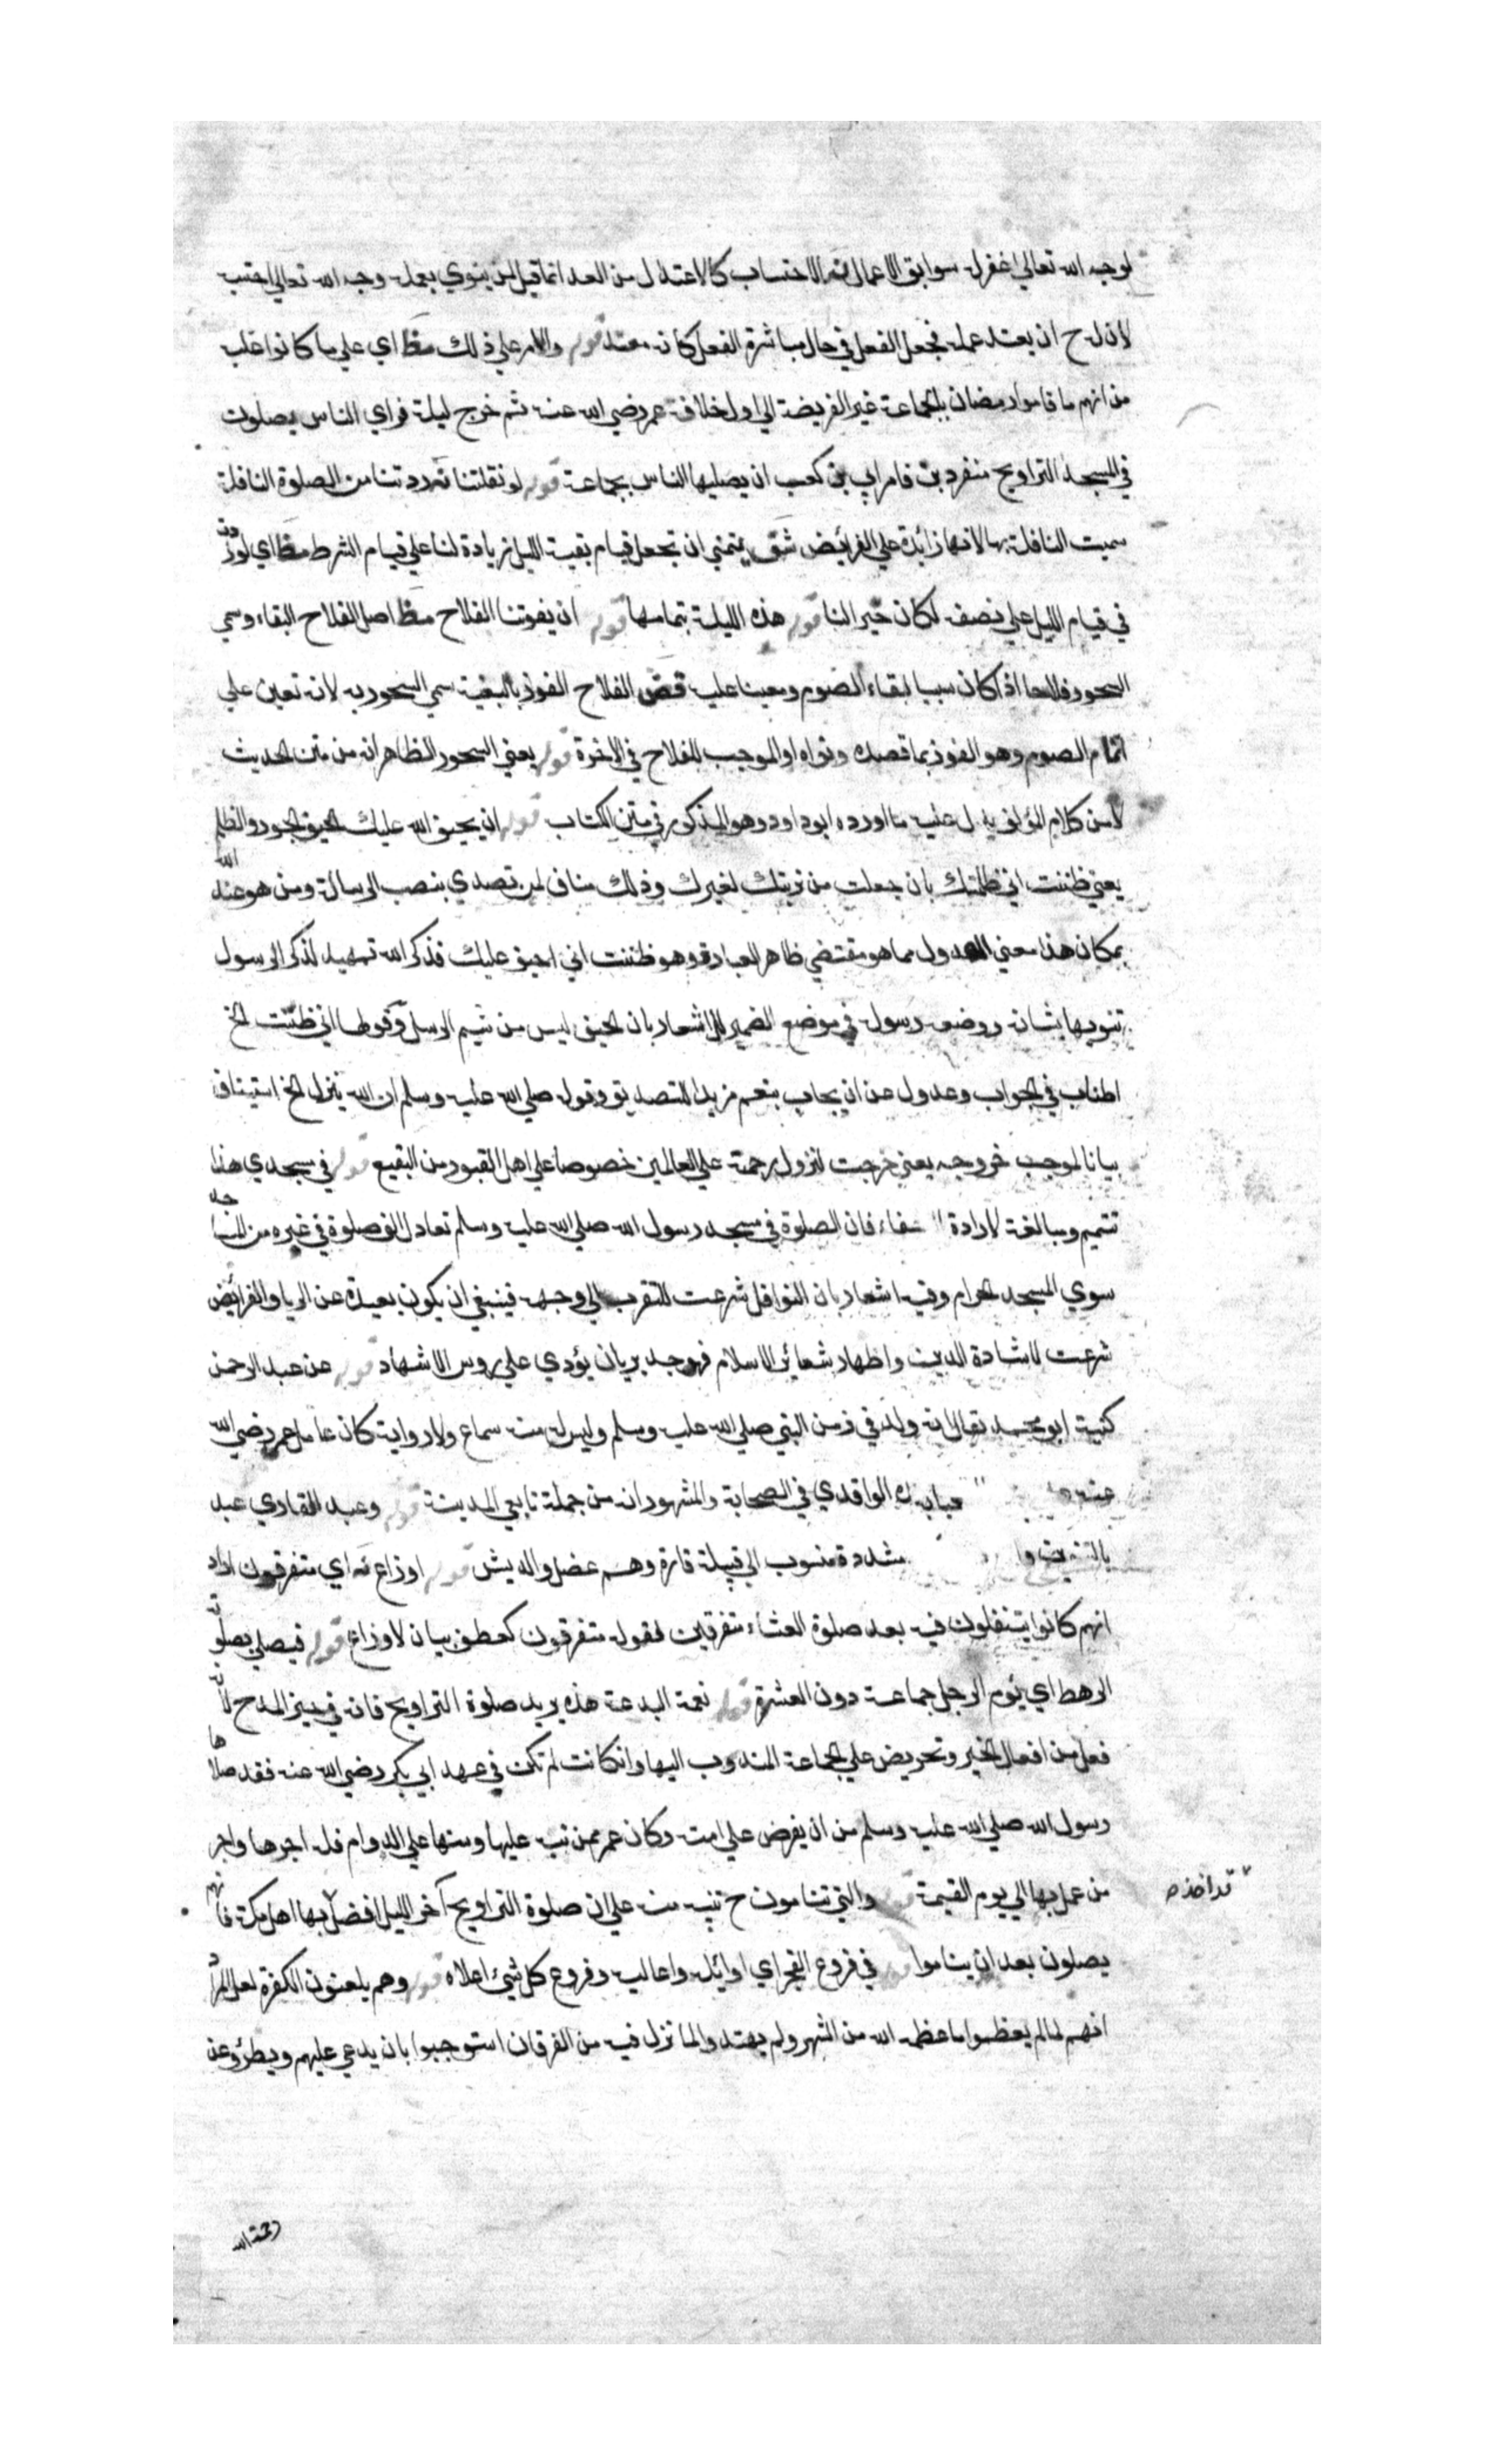 لوجه الله تعالى غفر له سوابق الاعمال نه الاحتساب كالاعتداد من العد انما قيل لمن ينوي بعمله وجه الله تعالى احتسب
لان له ح ان يعتد عمله فجعل الفعل في حال مباشرة الفعل كانه معتد قوله والامر علي ذلك مظ اي علي ما كانوا عليه
من انهم ما قاموا رمضان بالجماعة غير الفريضة الي اول خلافة عمر رضي الله عنه ثم خرج ليلة فراي الناس يصلون
في المسجد التراويح منفردين فامر ابي بن كعب ان يصليها الناس بجماعة قوله لو نفلتنا نه زدتنا من الصلوة النافلة
سميت النافلة بها لانها زائدة علي الفرائض شف يتمني ان تجعل قيام بقية الليل زيادة لنا علي قيام الشرط مظ اي لو زدت
في قيام الليل علي نصفه لكان خيرا لنا قوله هذه الليلة بتمامها قوله ان يفوتنا الفلاح مظ اصل الفلاح البقاء وسمي
السحور فلاحا اذ كان سببا لبقاء الصوم ومعينا عليه قض الفلاح الفوز بالبغية سمي السحور به لانه تعين علي
اتمام الصوم وهو الفوز بما قصده ونواه او الموجب للفلاح في الاخرة قوله يعني السحور الظاهر انه من متن الحديث
لا من كلام المؤلف يدل عليه ما اورده ابو داود وهو المذكور في متن الكتاب قوله ان يحيف الله عليك الحيف الجور والظلم
يعني ظننت اني ظلمتك بان جعلت من نوبتك لغيرك وذلك مناف لمن تصدي بمنصب الرسالة ومن هو عند الله
بمكان هذا معني العدول مما هو مقتضي ظاهر العبارة وهو ظننت اني احيف عليك فذكر الله تمهيد لذكر الرسول
تنويها بشانه ووضع رسوله في موضع الضمير للاشعار بان الحيف ليس من شيم الرسل وقولها اني ظننت الخ
اطناب في الجواب وعدول عن ان يجاب بنعم مزيدا للتصديق وقوله صلي الله عليه وسلم ان الله ينزل الخ استيناف
بيانا لموجب خروجه يعني خرجت لنزول رحمة علي العالمين خصوصا علي اهل القبور من البقيع قوله في مسجدي هذا
تتميم ومبالغة لارادة الاخفاء فان الصلوة في مسجد رسول الله صلي الله عليه وسلم تعادل الف صلوة في غيره من المساجد
سوي المسجد الحرام وفيه اشعار بان النوافل شرعت للتقرب الي وجهه فينبغي ان يكون بعيدة عن الريا والفرائض
شرعت لاشادة الدين واظهار شعائر الاسلام فهو جدير بان يؤدي علي روس الاشهاد قوله عن عبد الرحمن
كنيته ابو محمد يقال انه ولد في زمن النبي صلي الله عليه وسلم وليس له منه سماع ولا رواية كان عامل عمر رضي الله
عنه الواقدي في الصحابة والمشهور انه من جملة تابعي المدينة قوله وعبد القاري عبد
بالتنوين مشددة منسوب الي قبيلة قارة وهم عضل والديش قوله اوزاع نه اي متفرقون اراد
انهم كانوا يتنفلون فيه بعد صلوة العشاء متفرقين فقوله متفرقون كعطف بيان لاوزاع قوله فيصلي بصلوته
الرهط اي يؤم الرجل جماعة دون العشرة قوله نعمة البدعة هذه يريد صلوة التراويح فانه في حيز المدح لانه
فعل من افعال الخير وتحريض علي الجماعة المندوب اليها وان كانت لم تكن في عهد ابي بكر رضي الله عنه فقد صلاها
رسول الله صلي الله عليه وسلم من ان يفرض علي امته وكان عمر ممن نبه عليها وسنها علي الدوام فله اجرها واجر
من عمل بها الي يوم القيمة قوله والتي تنامون ح تنبيه منه علي ان صلوة التراويح آخر الليل افضل قد اخذ بها اهل مكة فانهم
يصلون بعد ان يناموا قوله في فروع الفجر اي اوائله واعاليه وفروع كل شيء اعلاه قوله وهم يلعنون الكفرة لعل المراد
انهم لما لم يعظموا ما عظمه الله من الشهر ولم يهتدوا لما نزل فيه من الفرقان استوجبوا بان يدعي عليهم ويطردوا عن
رحمة الله